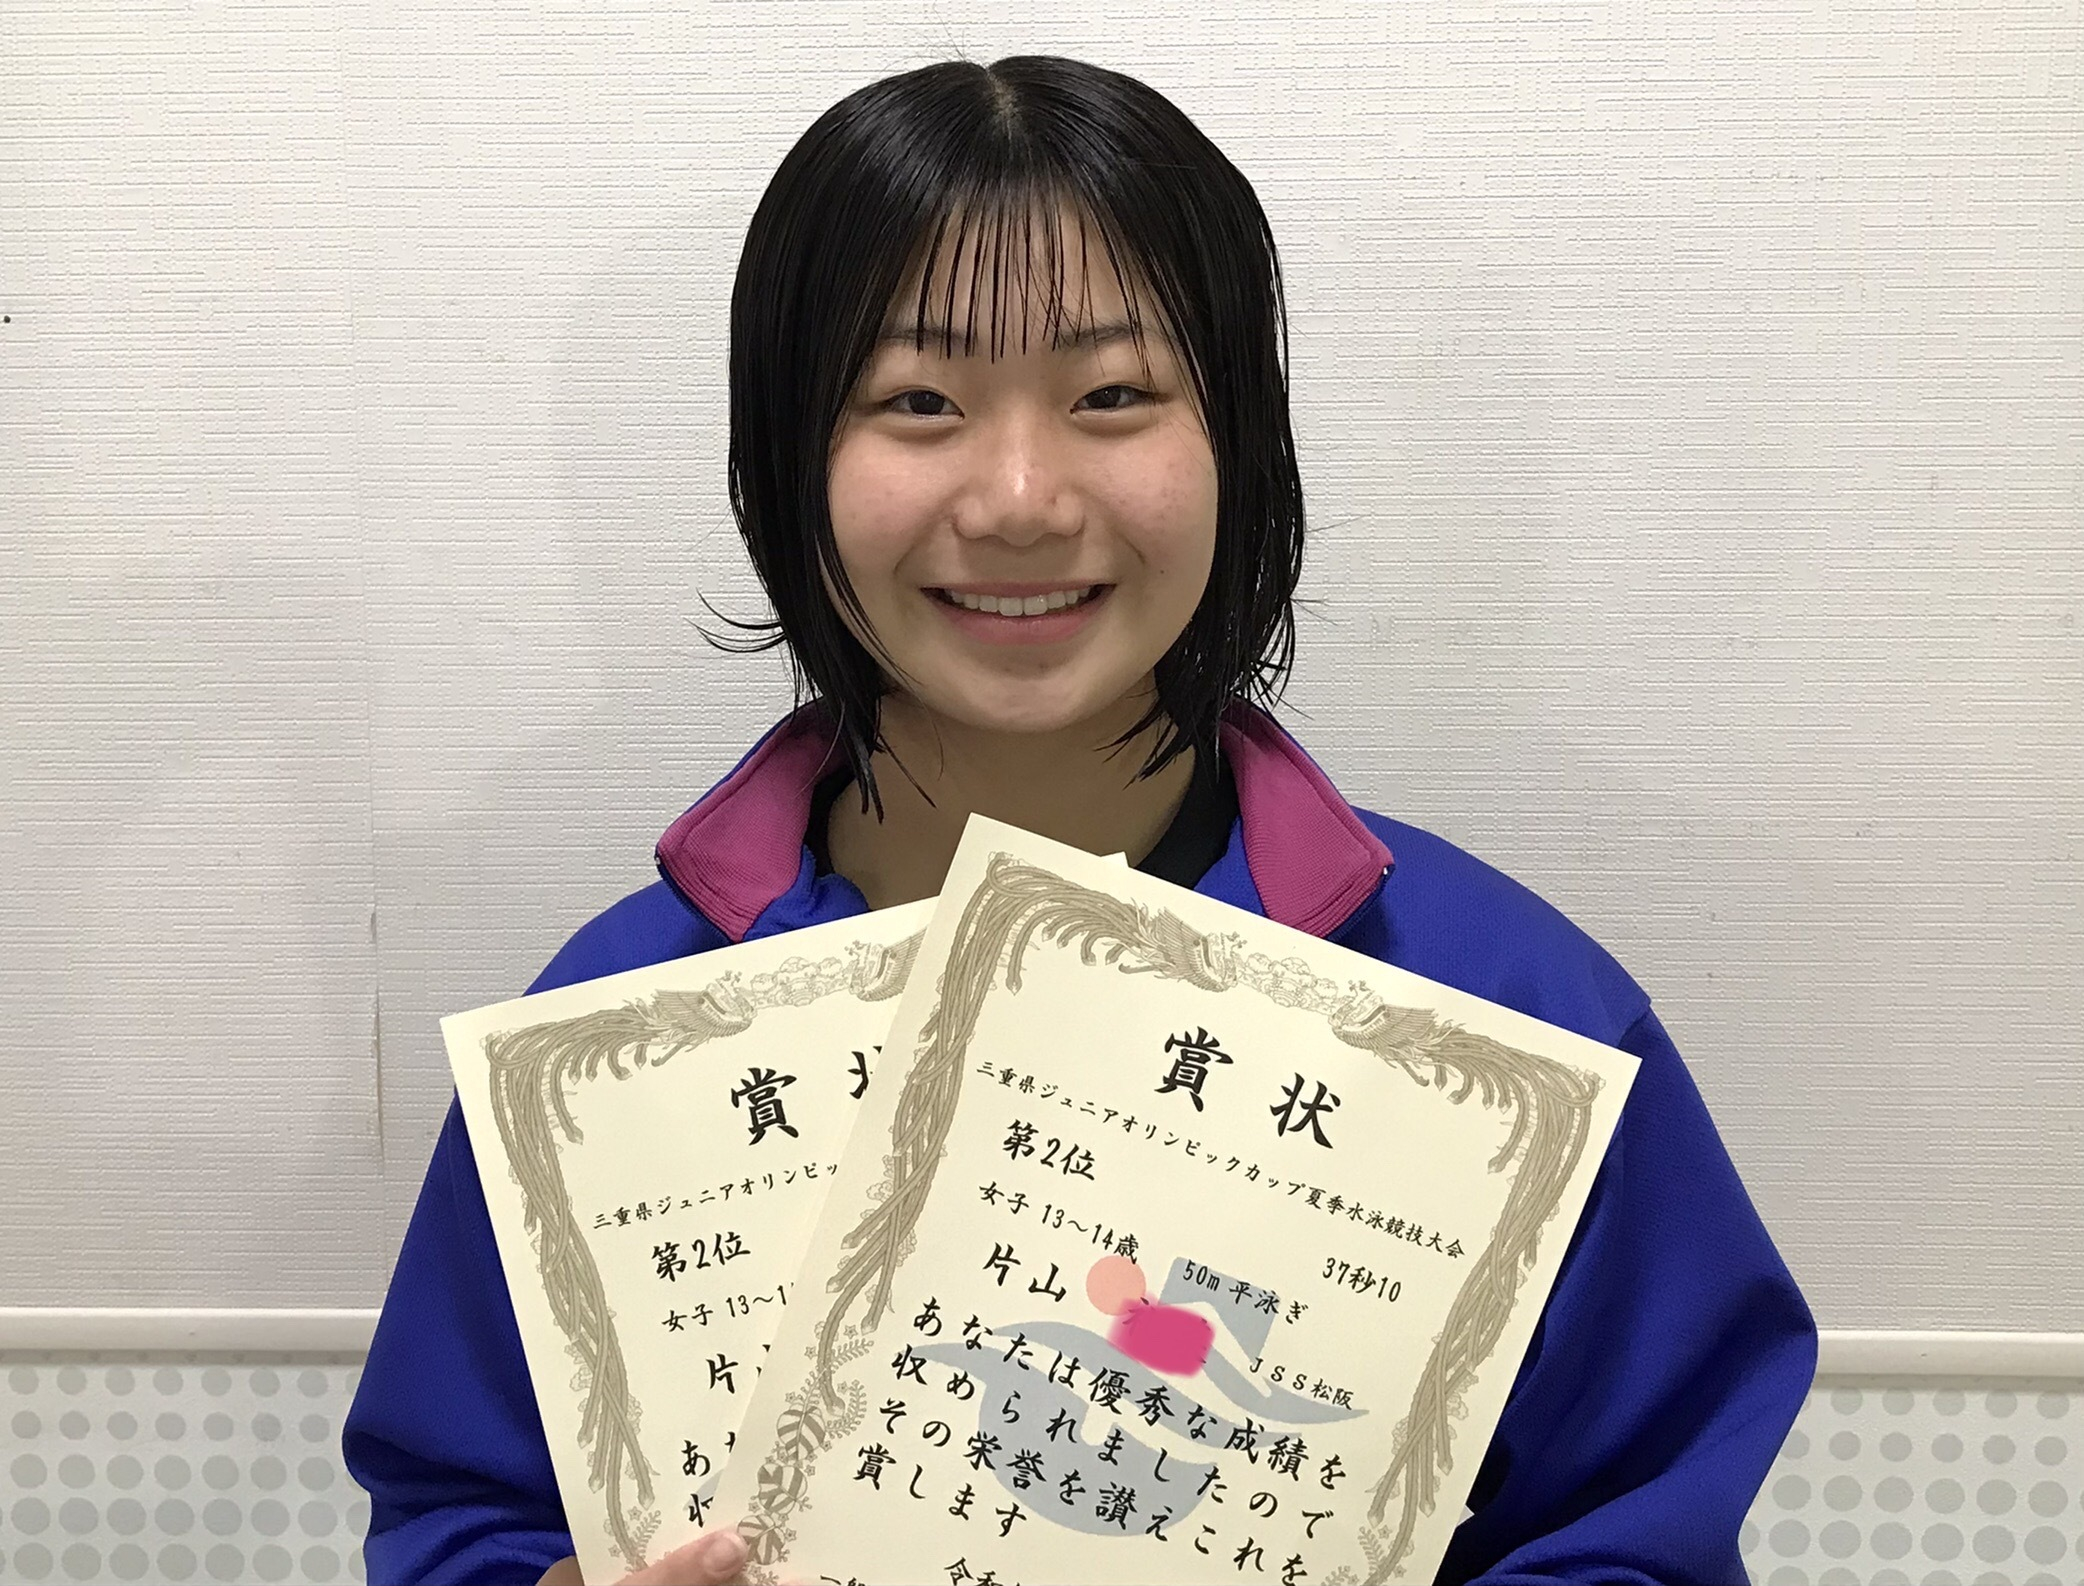 賞
三重県ジュニアオリンピッ
第2位
女子 13～1
片
あ
賞 状
三重県ジュニアオリンピックカップ夏季水泳競技大会
第2位
女子 13～14歳 50m 平泳ぎ 37秒10
片山
JSS松阪
あなたは優秀な成績を
収められましたので
その栄誉を讃えこれを
賞します
令和